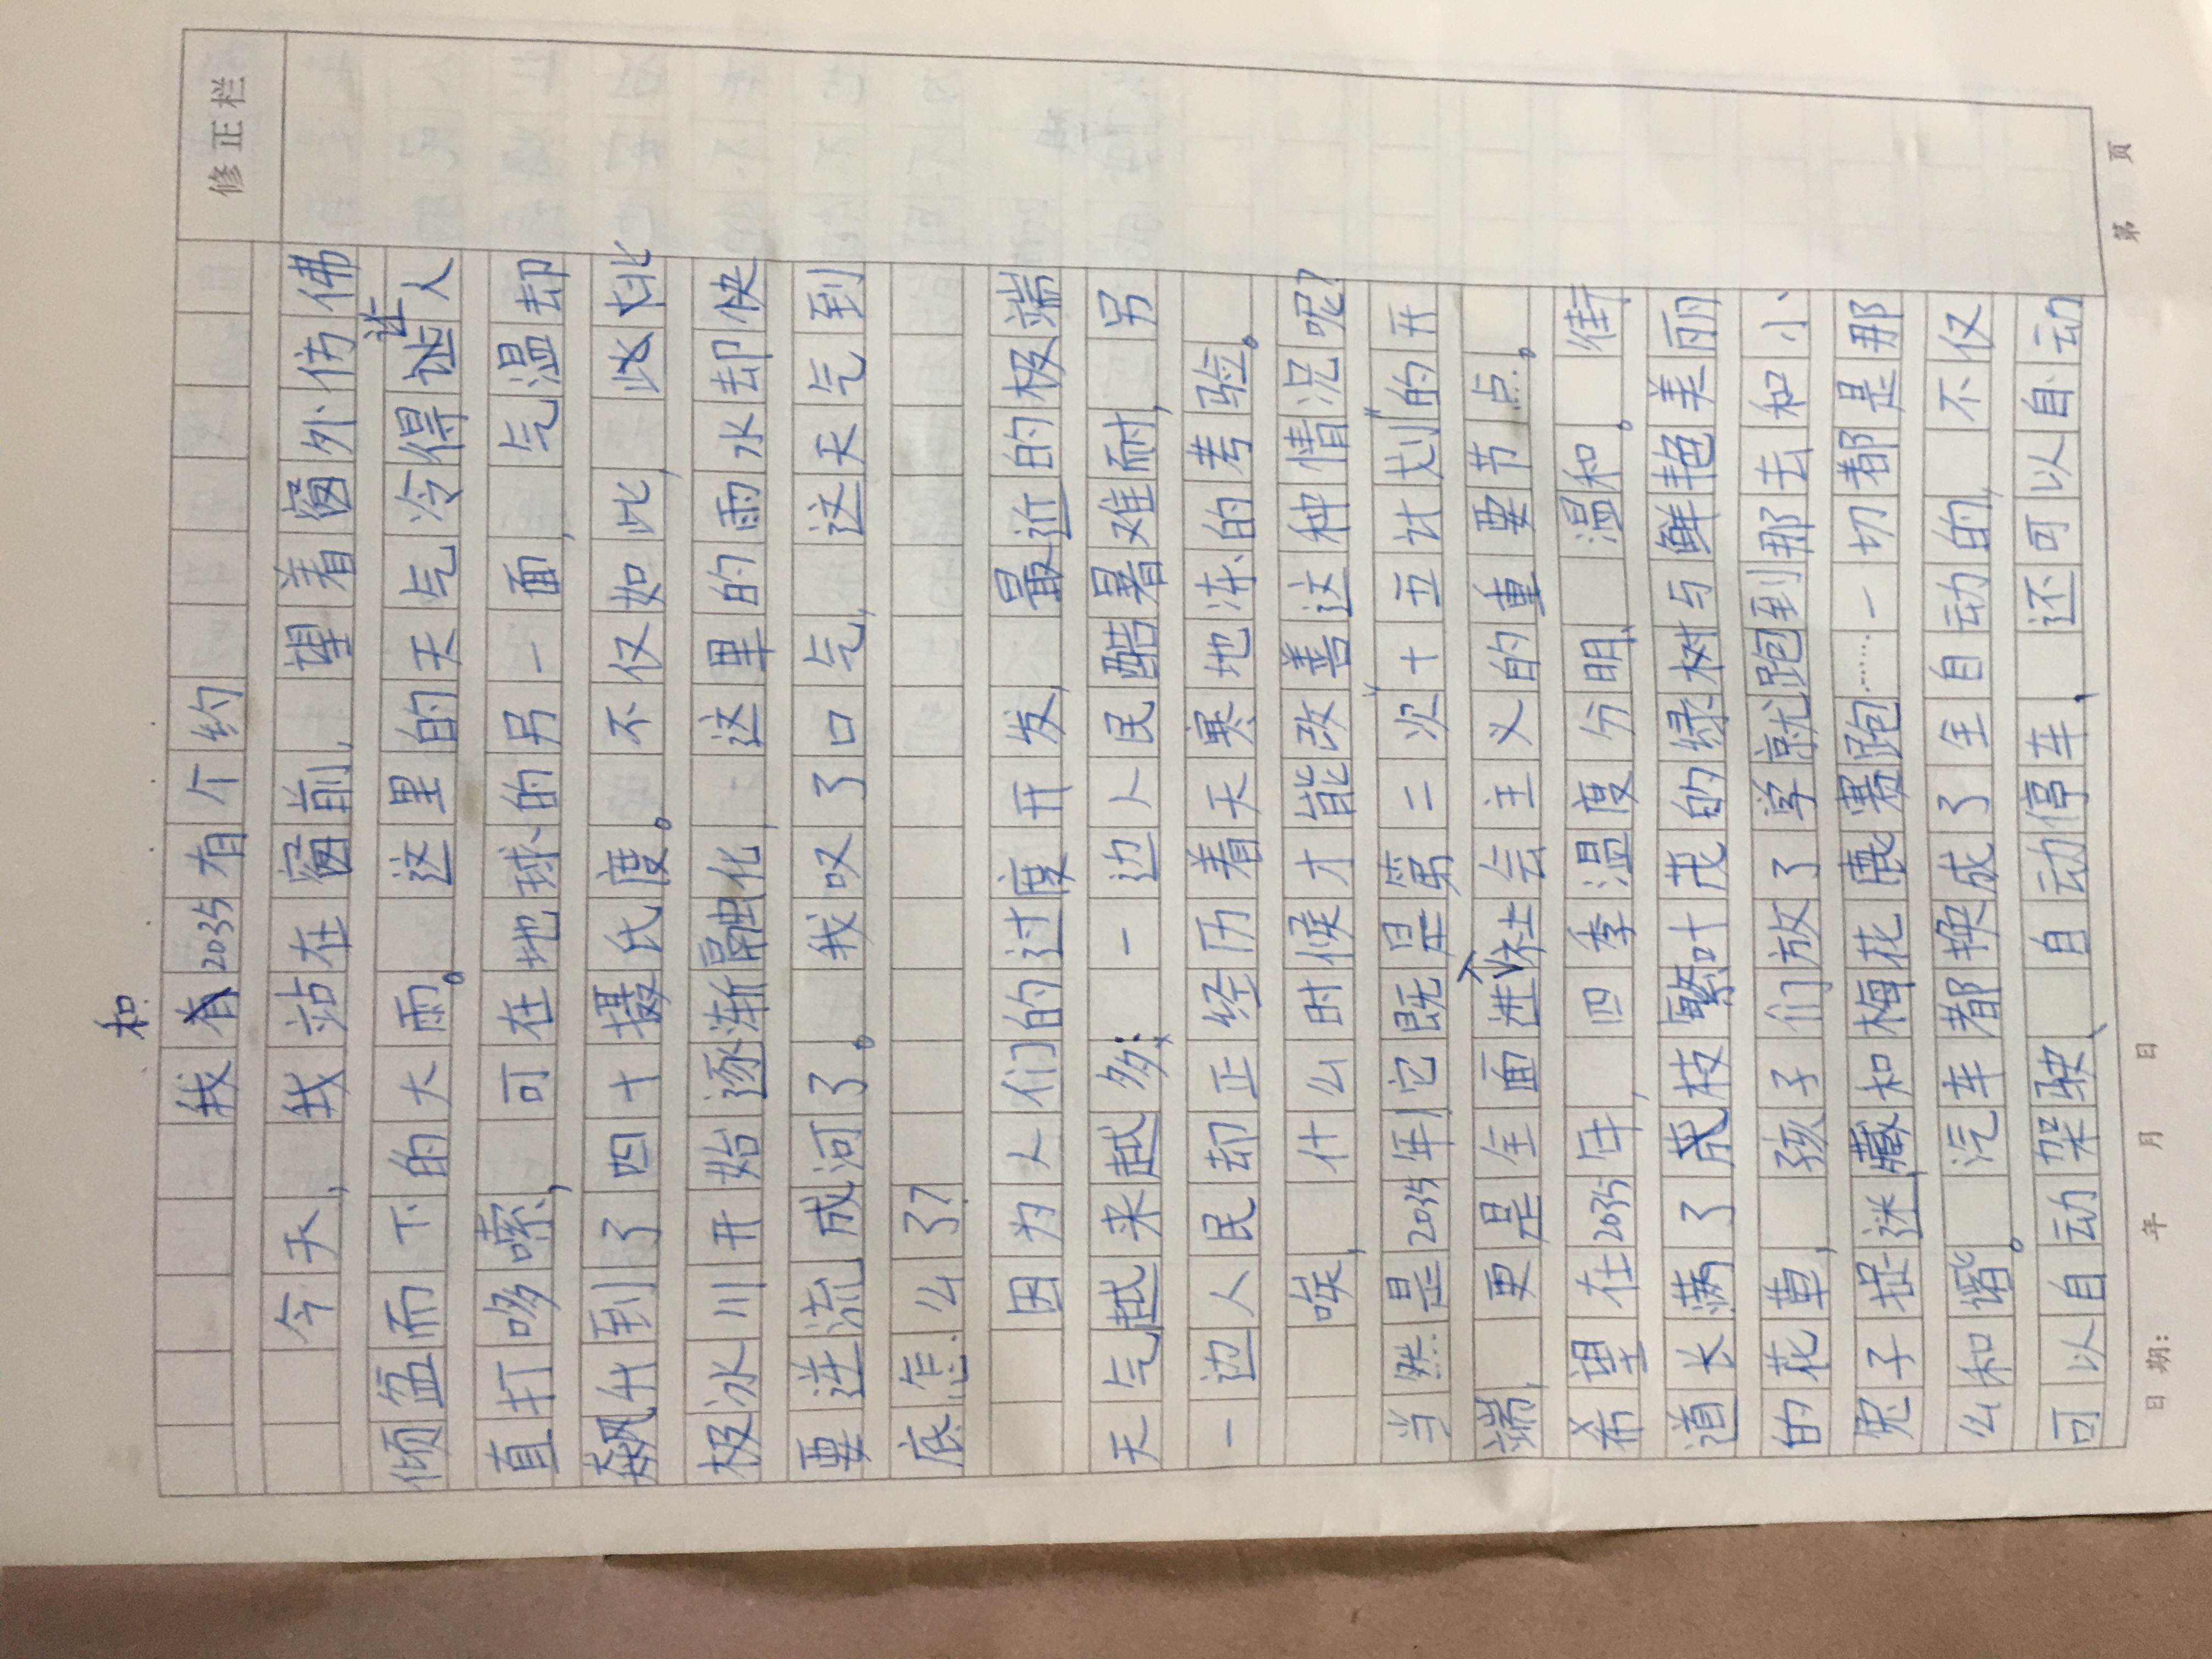 修正栏
我和2035有个约
今天，我站在窗前，望着窗外仿佛
倾盆而下的大雨。这里的天气冷得让人
直打哆嗦，可在地球的另一面，气温却
飙升到了四十摄氏度。不仅如此，北
极冰川开始逐渐融化，这里的雨水却快
要迸流成河了。我叹了口气，这天气到
底怎么了？
因为人们的过度开发，最近的极端
天气越来越多：一边人民酷暑难耐，另
一边人民却正经历着天寒地冻的考验。
唉，什么时候才能改善这种情况呢？
当然是2035年，它既是第二次“十五计划”的开
端，更是全面进入社会主义的重要节点。
希望在2035年，四季温度分明、温和。街
道长满了茂枝繁叶茂的绿树与鲜艳美丽
的花草，孩子们放了学就跑到那去和小
兔子捉迷藏和梅花鹿赛跑……一切都是那
么和谐。汽车都换成了全自动的，不仅
可以自动架驶、自动停车，还可以自动
日期： 年 月 日 第 页